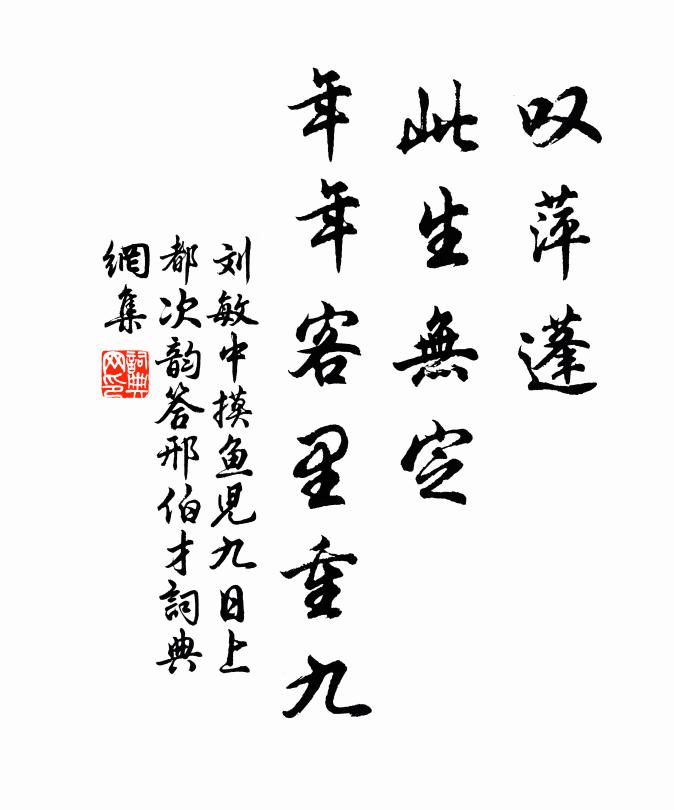 叹萍蓬
此生無定
年年客里重九
刘敏中摸鱼児九日上
都次韵答邢伯才詞典
網集
詞典網印